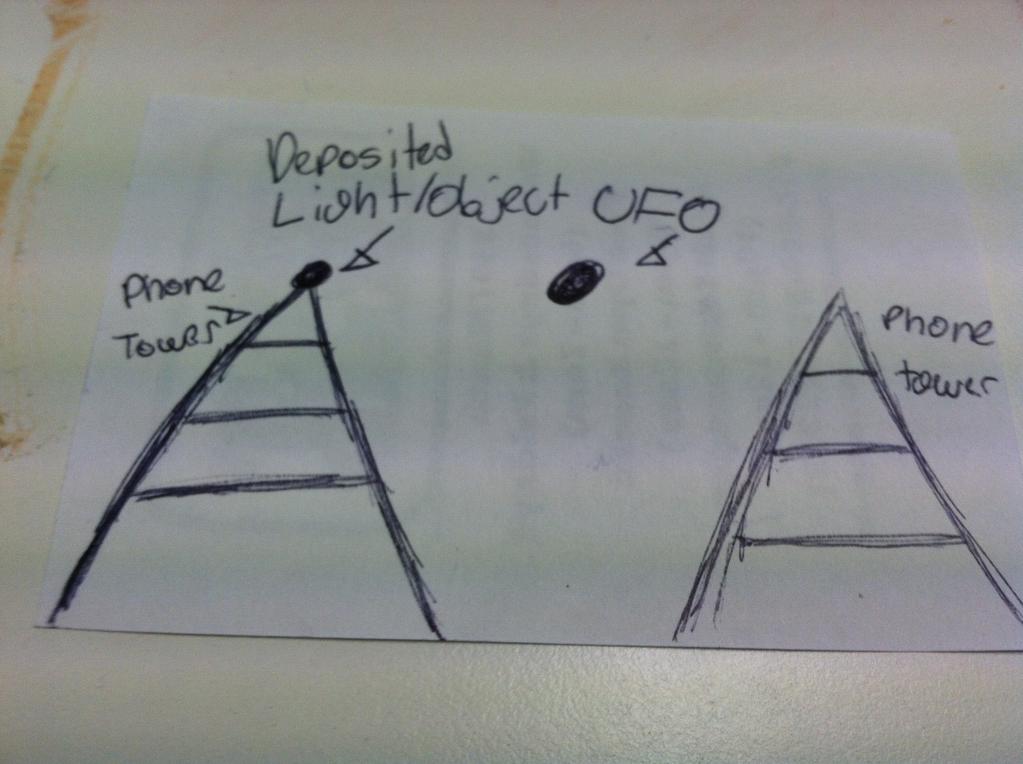 Deposited
Light/object UFO
Phone
Tower
Phone
tower